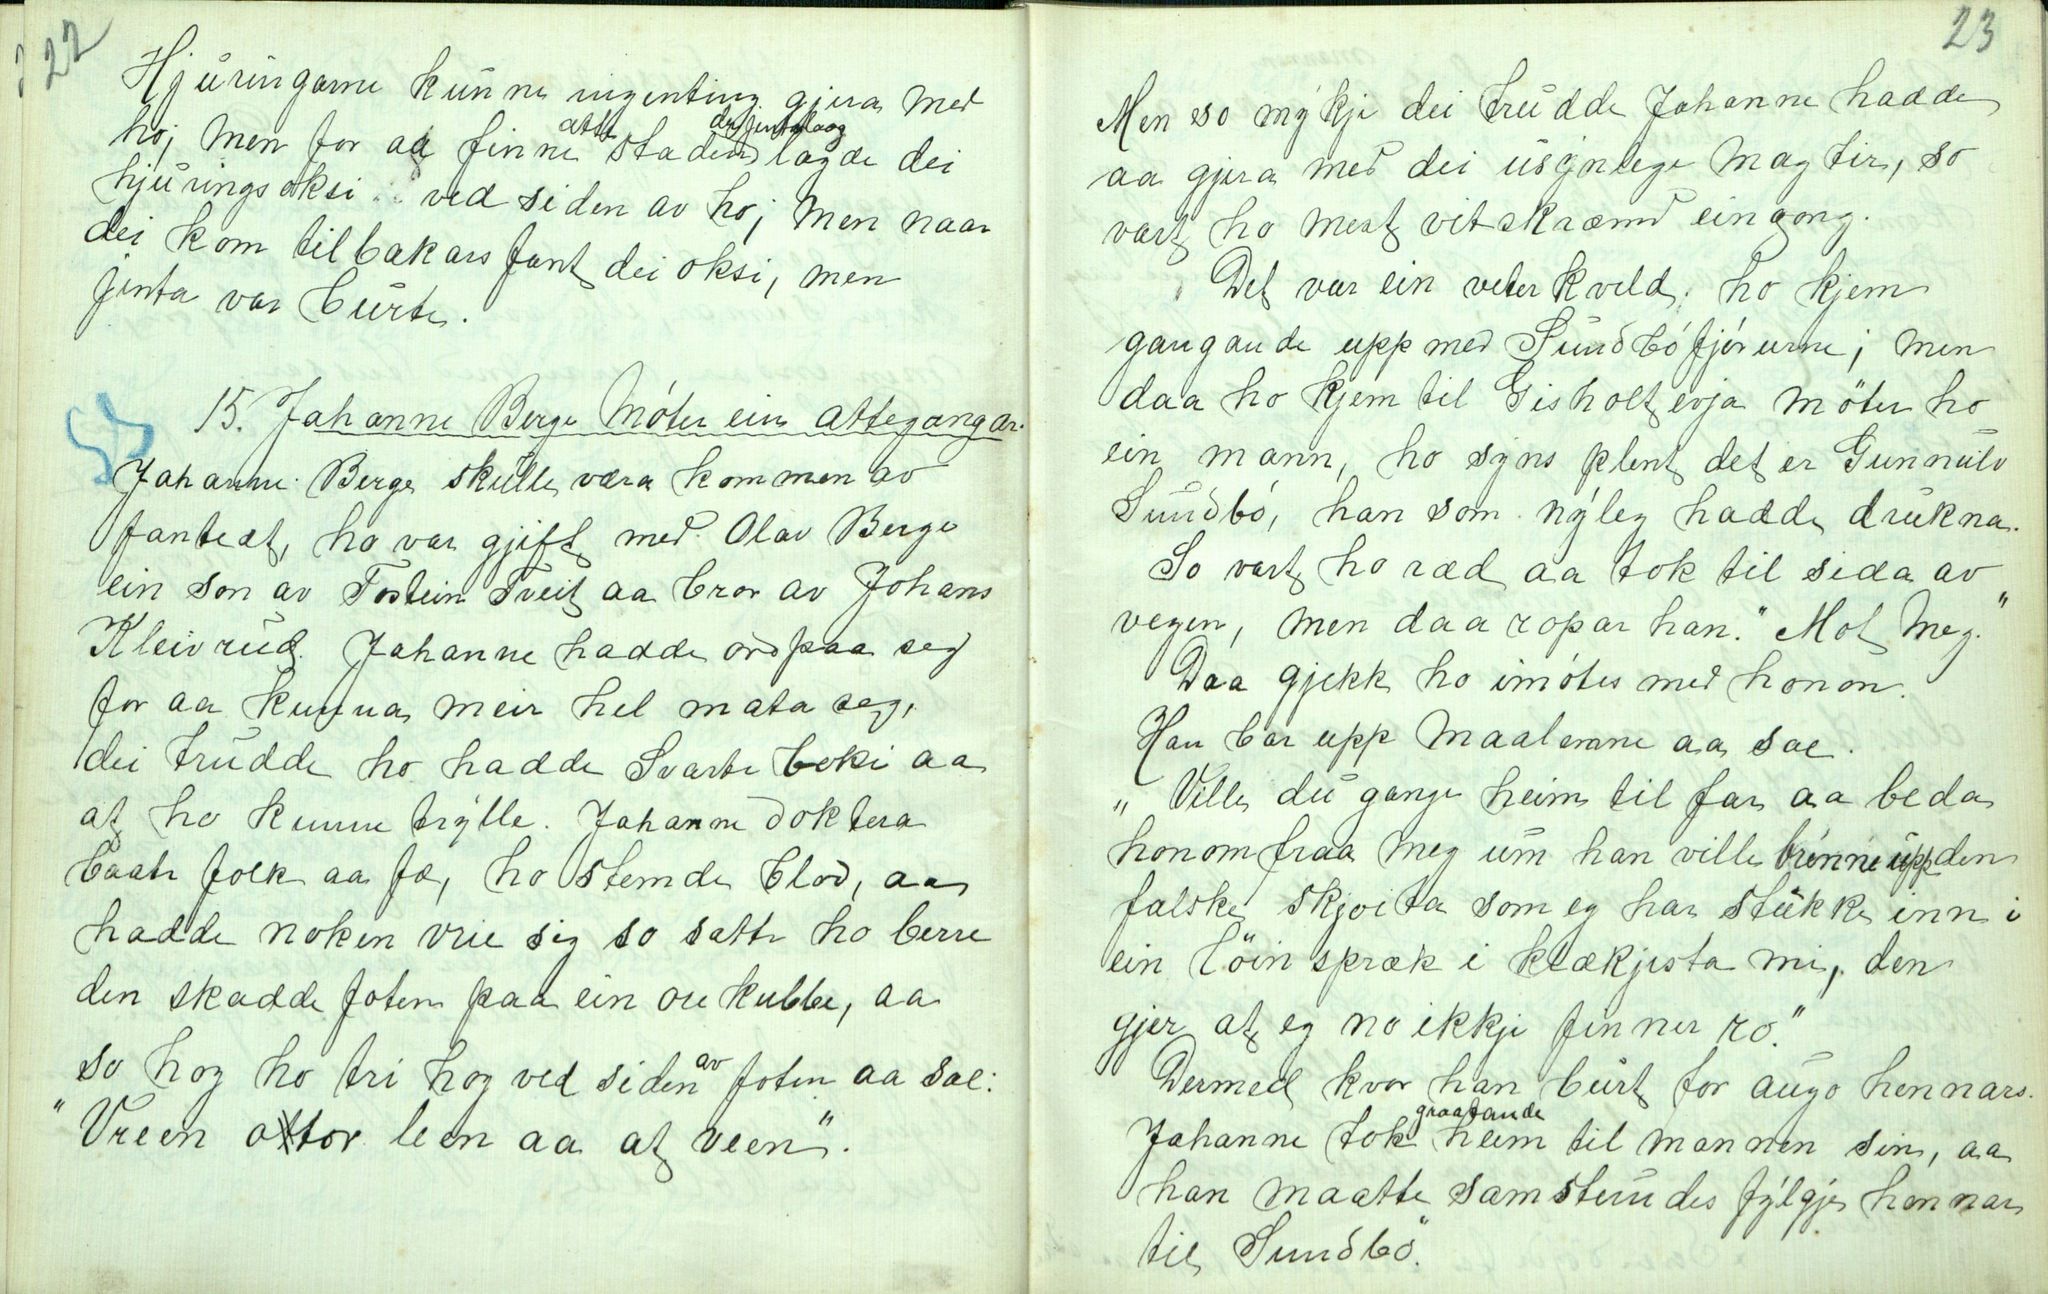 22
Hjuringarne kunne ingenting gjera med
ho; men for aa finne att staden der jenta laag lagde dei
hjuringsoksi ved siden av ho; men naar
dei kom tilbakars fant dei oksi, men
jenta var burte.
15. Johanne Berge møter ein attegangar.
Johanne Berge skulle væra kommen av
fanteæt, ho var gjift med Olav Berge
ein son av Tostein Tveit aa bror av Johans
Kleivrud. Johanne hadde ord paa seg
for aa kunna meir hel mata seg,
dei trudde ho hadde Svarteboki aa
at ho kunne trylle. Johanne doktera
baate folk aa fæ, ho stemde blod, aa
hadde noken vrie sig so satte ho berre
den skadde foten paa ein orekubbe, aa
so hog ho tri hog ved siden av foten aa sae:
"Vreen ottor leen aa at veen".
23
Men so mykje dei trudde Johanne hadde
aa gjera med dei usynlege magtir, so
vart ho mest vitskræmd eingong.
Det var ein veterkveld; ho kjem
gangande upp med Sundbøfjørurne; men
daa ho kjem til Gisholtevja møter ho
ein mann, ho syns plent det er Gunnulv
Sundbø, han som nyleg hadde drukna.
So vart ho ræd aa tok til sida av
vegen, men daa ropar han. "Møt meg."
Daa gjekk ho imøtes med honon.
Han bar upp maalerne aa sae.
"Ville du gange heim til far aa beda
honom fraa meg um han ville brenne upp den
falske skjøita som eg har stukke inn i
ein løin spræk i klækjista mi, den
gjer at eg no ikkji finner ro."
Dermed kvor han burt for augo hennars.
Johanne tok graatande heim til mannen sin, aa
han maatte samstundes fylgje hennar
til Sundbø".